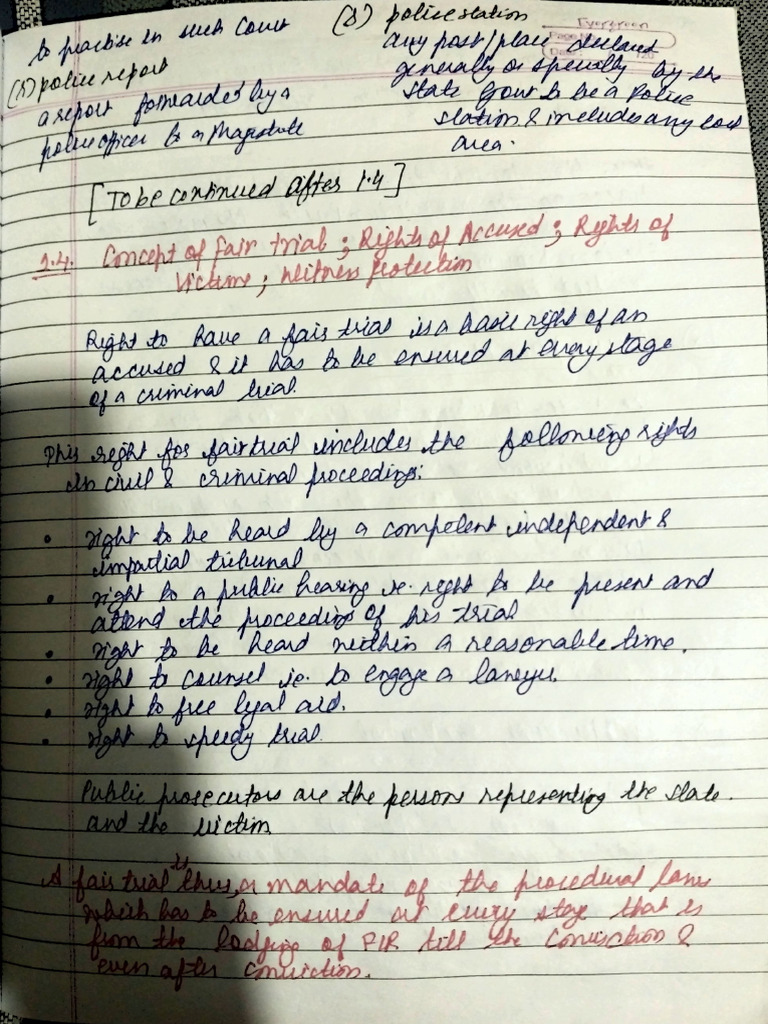 to practise in such Court
(r) police report
a report forwarded by a
police officer to a Magistrate
(s) police station
any post/place declared
generally or specially by the
State Govt to be a Police
station & includes any local
area.
Evergreen
Page No.
Date: 120
[To be continued after 1.4]
1.4. Concept of fair trial; Rights of Accused; Rights of
Victims; Witness protection
Right to have a fair trial is a basic right of an
accused & it has to be ensured at every stage
of a criminal trial.
This right for fair trial includes the following rights
in civil & criminal proceedings:
• right to be heard by a competent independent &
impartial tribunal
• right to a public hearing i.e. right to be present and
attend the proceedings of his trial
• right to be heard within a reasonable time.
• right to counsel i.e. to engage a lawyer.
• right to free legal aid.
• right to speedy trial
Public prosecutors are the persons representing the state
and the victim
A fair trial is thus, a mandate of the procedural laws
which has to be ensured at every stage that is
from the lodging of FIR till the conviction &
even after conviction.